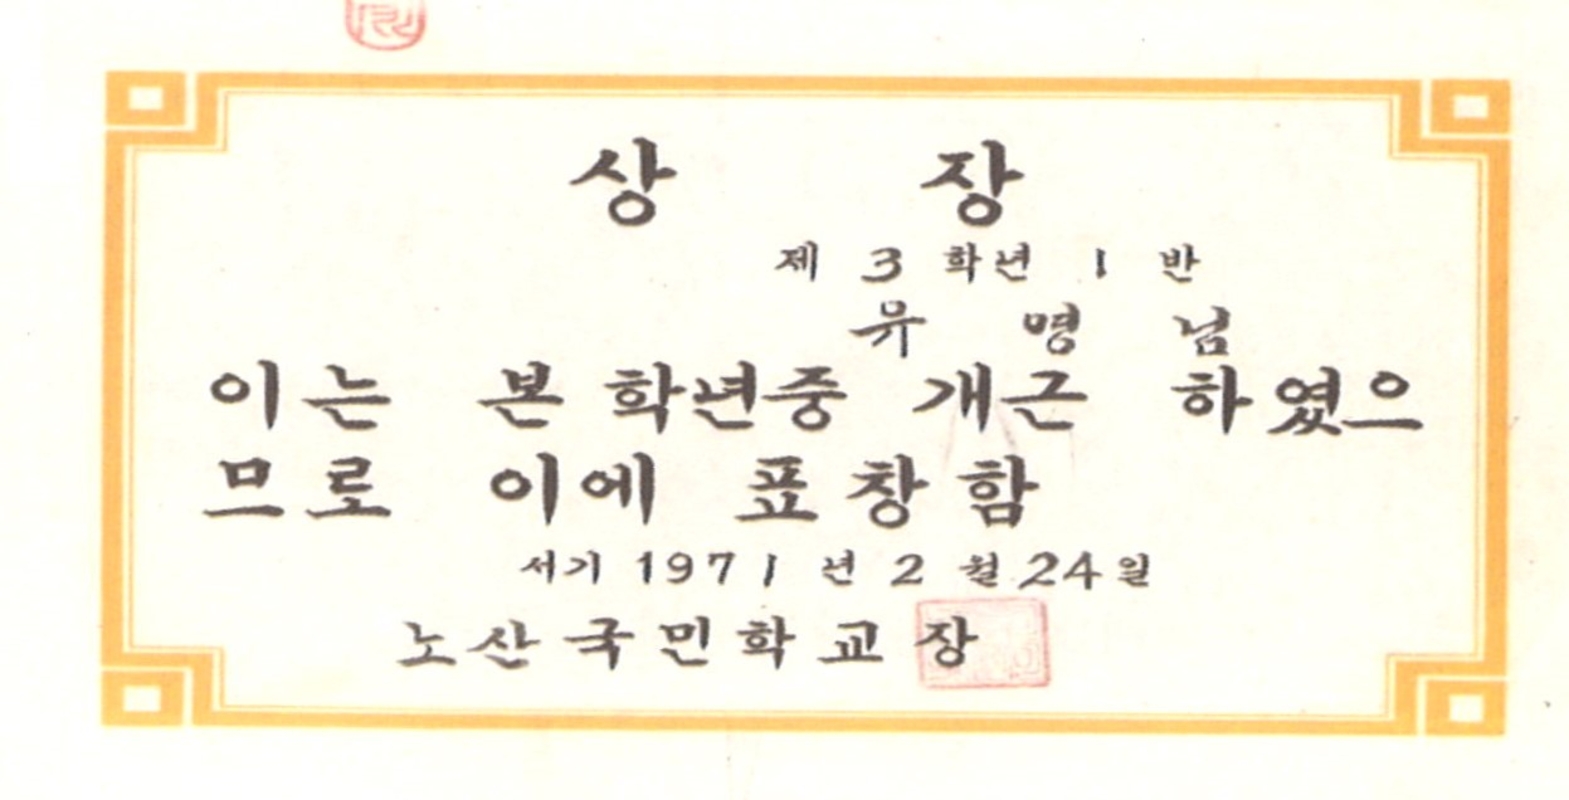 상 장
제 3 학년 1 반
유 명 님
이는 본 학년중 개근 하였으
므로 이에 표창함
서기 1971 년 2 월 24 일
노산국민학교장